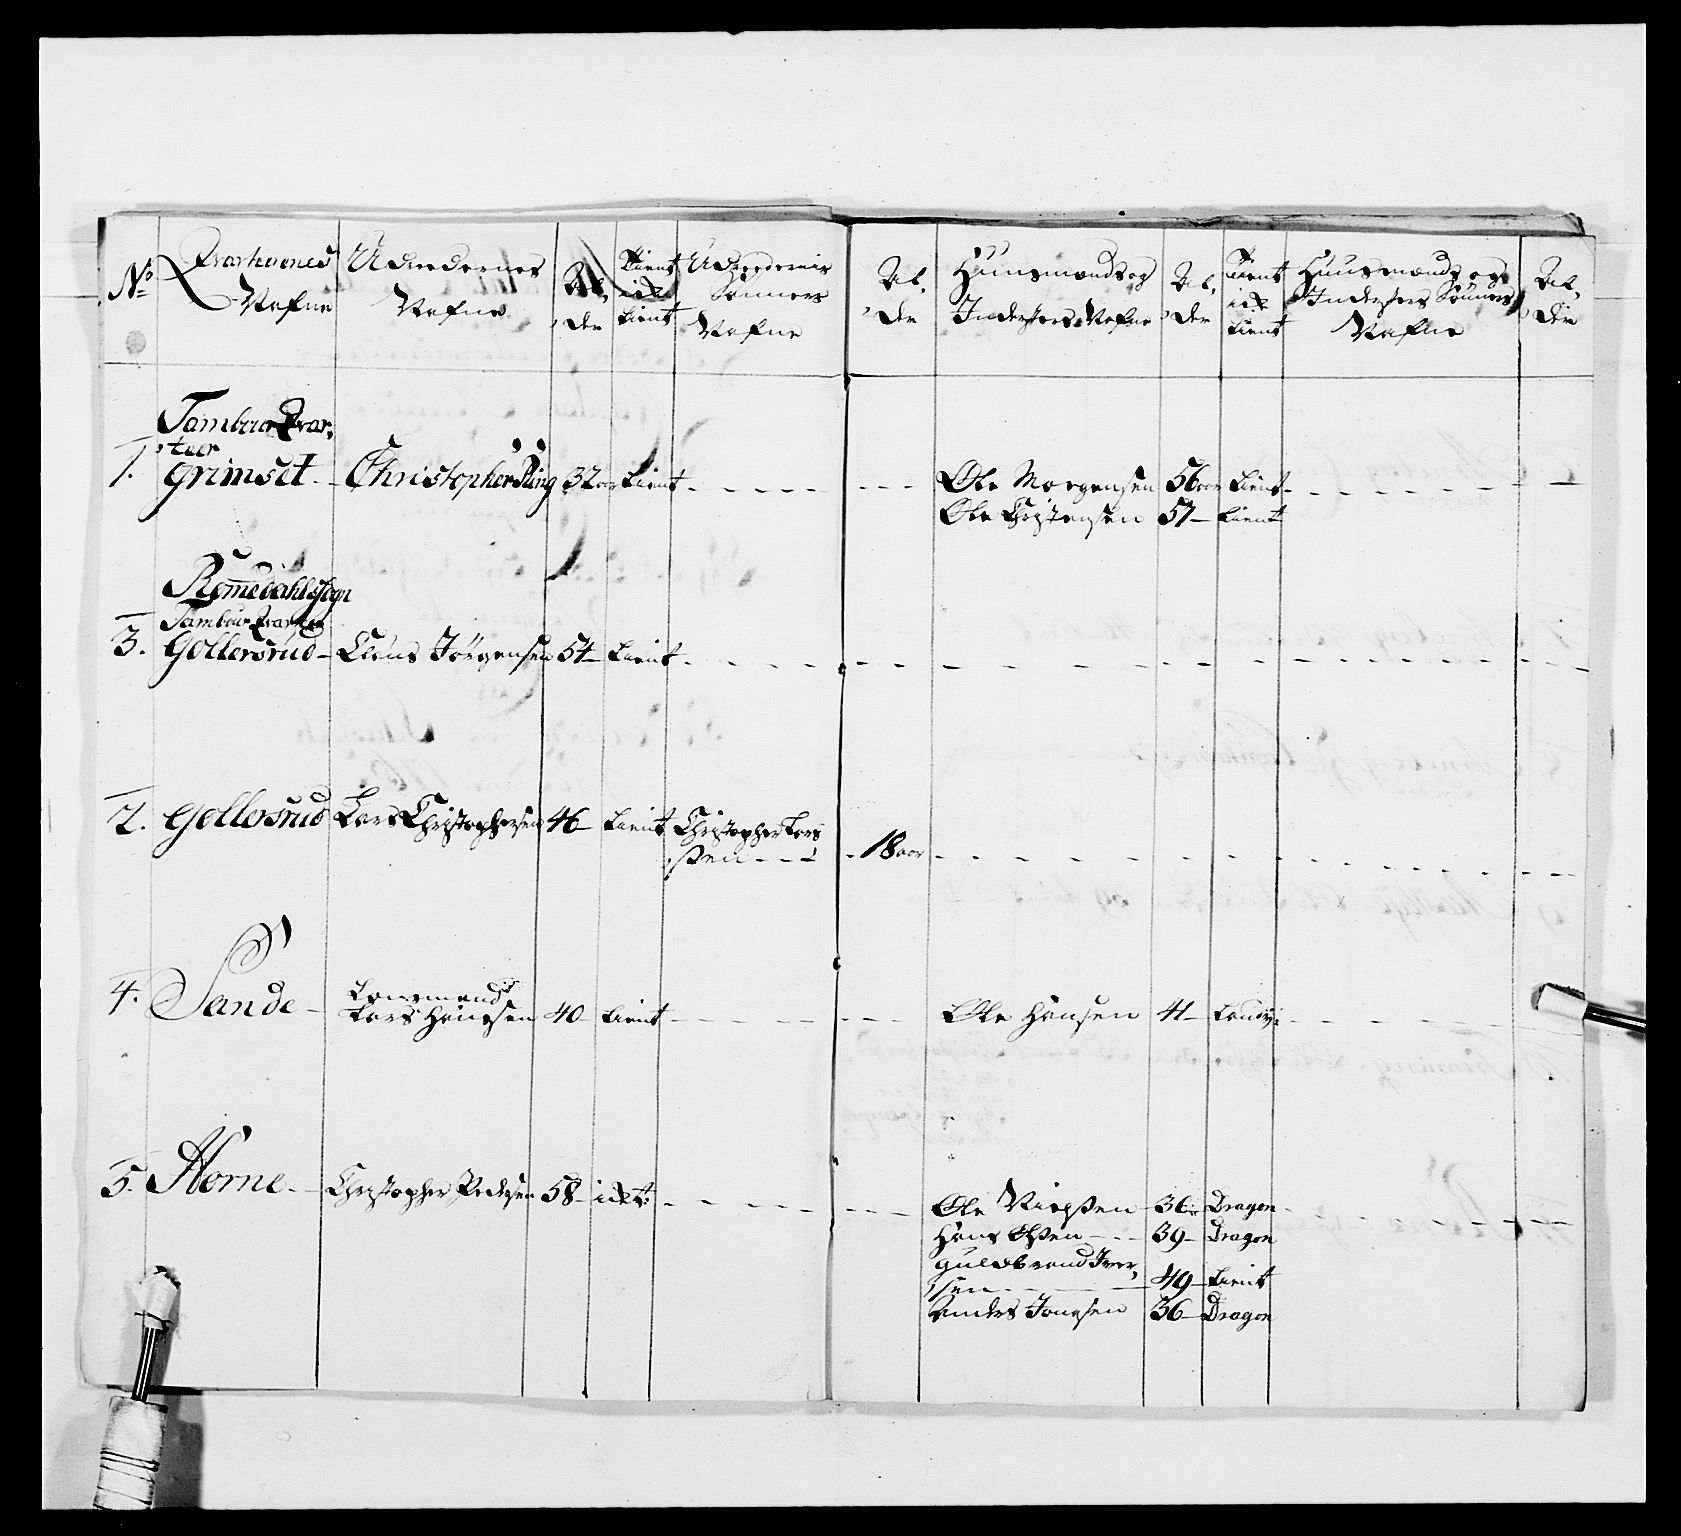 No
Qvarterenes
Nafne
Udreedernes
Nafne
Al,
der
Tient
ick
tient
Udreedernis
Sønners
Nafne
Al,
der
Huusmænds og
Inderster Nafne
Al,
der
Tient
ick
tient
Huusmænds og
Indersters Sønners
Nafne
Al,
der
Tambour Qvar,
teer
1. Grimset - Christopher 32 aar tient - - - - Ole Morgensen 56 aar tient - - - -
Ole Christensen 57 - tient
Romedahls Sogn
Tambour Qvarteer
3. Gollersrud - Clöus Jörgensen 54 - tient - - - -
2. Gollersrud Lars Christophersen 46 - tient Christopher Lars
ßen - - - 18 aar - - - -
4. Sande -
Lars Hansen 40 - tient - - - - Ole Hansen 41 - - - -
5. Horne - Christopher Pedersen 58 - ickt: - - - - Ole 36 - Dragon - - - -
Hans Olßen - - - 39 - Dragon
Guldbrand Iver,
sen - - - 49 - tient
Anders Jonsen 36 - Dragon